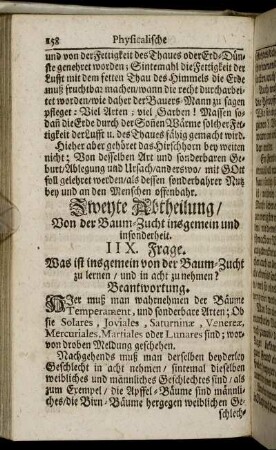 158 Physicalische
und von der Fettigkeit des Thaues oder Erd-Dün-
ste genehret worden; Sintemahl die Fettigkeit der
Lufft mit dem fetten Thau des Himmels die Erde
muß fruchtbar machen/wann die recht durcharbei-
tet worden/wie daher der Bauers-Mann zu sagen
pfleget: Viel Arten; viel Garben! Massen so-
dañ die Erde durch der Soñen Wärme solcher Fet-
tigkeit der Lufft u. des Thaues fähig gemacht wird.
Hieher aber gehöret das Hirschhorn bey weiten
nicht: Von desselben Art und sonderbaren Ge-
burt/Ablegung und Ursach/anderswo/ mit GOtt
soll gelehret werden/als dessen sonderbahrer Nutz
bey und an den Menschen offenbahr.
Zweyte Abtheilung/
Von der Baum-Zucht insgemein und
insonderheit.
IIX. Frage.
Was ist insgemein von der Baum-Zucht
zu lernen/ und in acht zu nehmen?
Beantwortung.
HIer muß man wahrnehmen der Bäume
Temperament, und sonderbare Arten; Ob
sie Solares, Joviales, Saturninæ, Venereæ,
Mercuriales, Martiales oder Lunares sind; wor-
von droben Meldung geschehen.
Nachgehends muß man derselben beyderley
Geschlecht in acht nehmen/ sintemal dieselben
weibliches und männliches Geschlechtes sind/als
zum Exempel/ die Apffel-Bäume sind männli-
ches/die Birn-Bäume hergegen weiblichen Ge-
schlech-